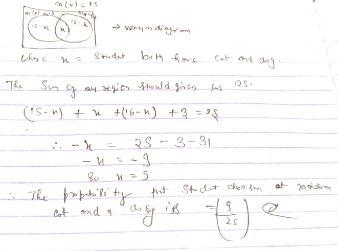 n(v) = 25
15-x x 16-x → venn diagram
where x = Studet both have cat and dog.
The Sum of region should given us 25.
(15-x) + x + (16-x) + 3 = 25
∴ -x = 25 - 3 - 31
-x = -9
So x = 9
∴ The that Studet choosen at random
cat and a dog is = (9/25)